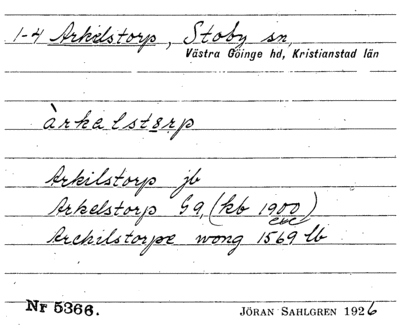 1-4 Arkilstorp, Stoby sn,
Västra Göinge hd, Kristianstad län
àrkalstårp
Arkilstorp jb
Arkelstorp G9, (kb 1900)
Archilstorpe wong 1569 lb
Nr 5366.
JÖRAN SAHLGREN 1926